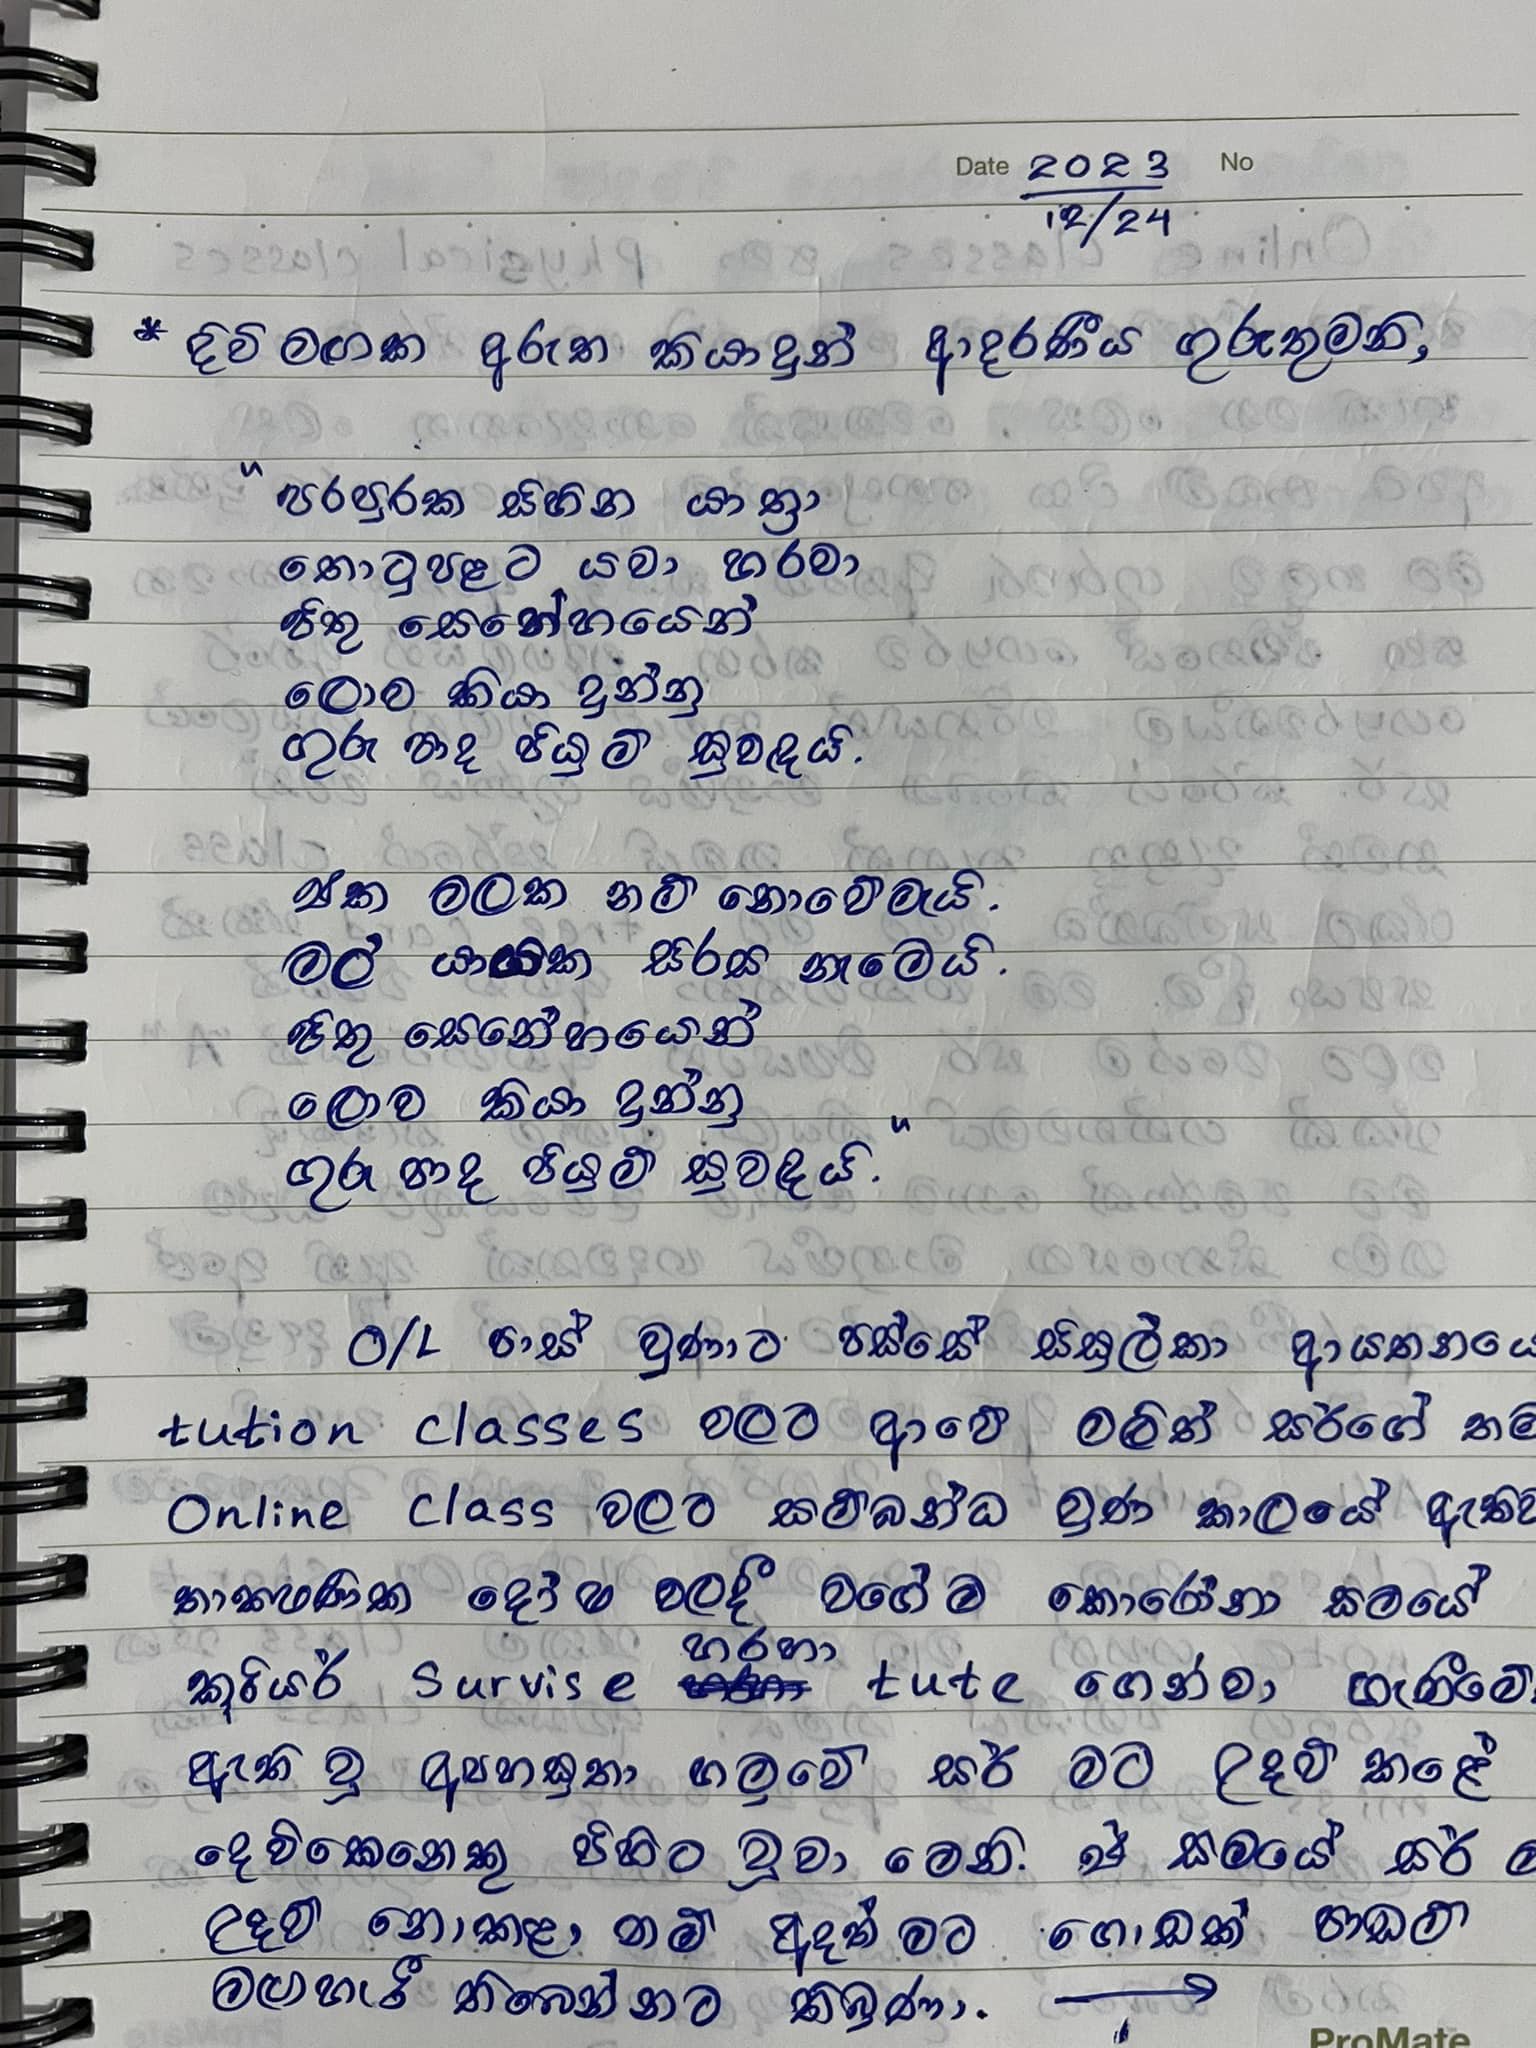 Date 2023 No
12/24
* දිවි මගක අරුත කියාදුන් ආදරණීය ගුරුතුමනි,
"පරපුරක සිහින යාත්‍රා
තොටුපළට යවා හරමා
පිතු සෙනේහයෙන්
ලොව කියා දුන්නු
ගුරු පාද පියුම් සුවඳයි.
එක මලක නම් නොවේමැයි.
මල් යායක සිරස නැමෙයි.
පිතු සෙනේහයෙන්
ලොව කියා දුන්නු
ගුරු පාද පියුම් සුවඳයි."
O/L පාස් වුණාට පස්සේ සිසුල්කා ආයතනයේ
tution classes වලට ආවේ මලිත් සර්ගේ තම
Online class වලට සම්බන්ධ වුණ කාලයේ ඇතිව
තාක්ෂණික දෝෂ වලදී වගේම කොරෝනා සමයේ
කුරියර් Survise හරහා tute ගෙන්වා ගැණීමේ
ඇති වූ අපහසුතා හමුවේ සර් මට උදව් කළේ
දෙවිකෙනෙකු පිහිට වූවා මෙනි. ඒ සමයේ සර් ම
උදව් නොකළා නම් අදත් මට ගොඩක් පාඩම්
මගහැරී තිබෙන්නට තිබුණා. →
ProMate